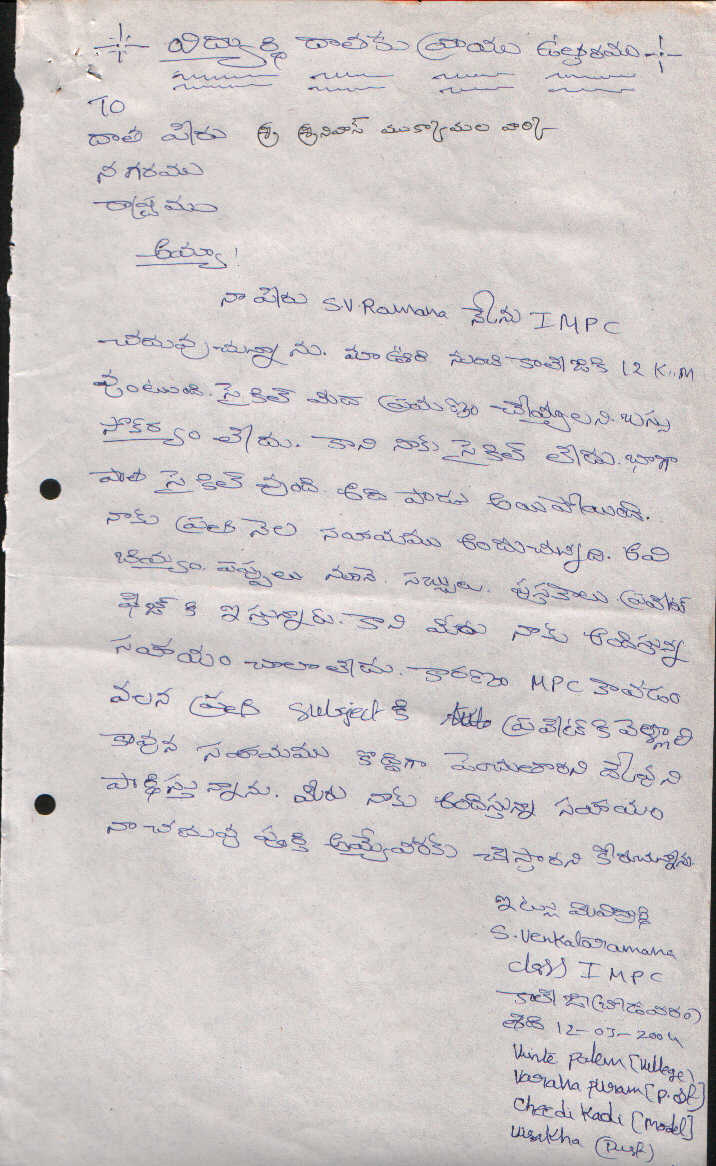 విద్యార్థి దాతకు వ్రాయు ఉత్తరము
TO
దాత పేరు శ్రీ శ్రీనివాస్ ముక్యామల వార్కి
నగరము
రాష్ట్రము
అయ్యా!
నా పేరు S.V Ramana నేను I MPC
చదువుచున్నాను. మా ఊరి నుంచి కాలేజికి 12 K.M
వుంటుంది. సైకిల్ మీద ప్రయాణం చేయ్యాలని. బస్సు
సౌకర్యం లేదు. కాని నాకు సైకిల్ లేదు. బాగా
పాత సైకిల్ వుంది. అది పాడు అయిపోయింది.
నాకు ప్రతి నెల సహాయము అందుచున్నది. అవి
బియ్యం. పప్పులు నూనె. సబ్బులు. పుస్తకాలు ప్రైవేట్
ఫీజ్ కి ఇస్తున్నారు. కాని మీరు నాకు అందిస్తున్న
సహాయం చాలా లేదు. కారణం MPC కావడం
వలన ప్రతి subject కి ప్రవేట్ కి వెళ్ళాలి
కావున సహాయము కొద్దిగా పెంచుతారని దేవుని
ప్రార్థిస్తున్నాను. మీరు నాకు అందిస్తున్న సహాయం
నా చదువు పూర్తి అయ్యేవరకు చేస్తారని కోరుచున్నాను
ఇట్లు మీవిద్యార్థి
S. Venkataramana
class I MPC
కాలేజి (చోడవరం)
తేది 12-03-2004
Vinte palem [Village)
Varaha puram [P.st]
Cheedi Kada [Model]
Visakha (Dist)